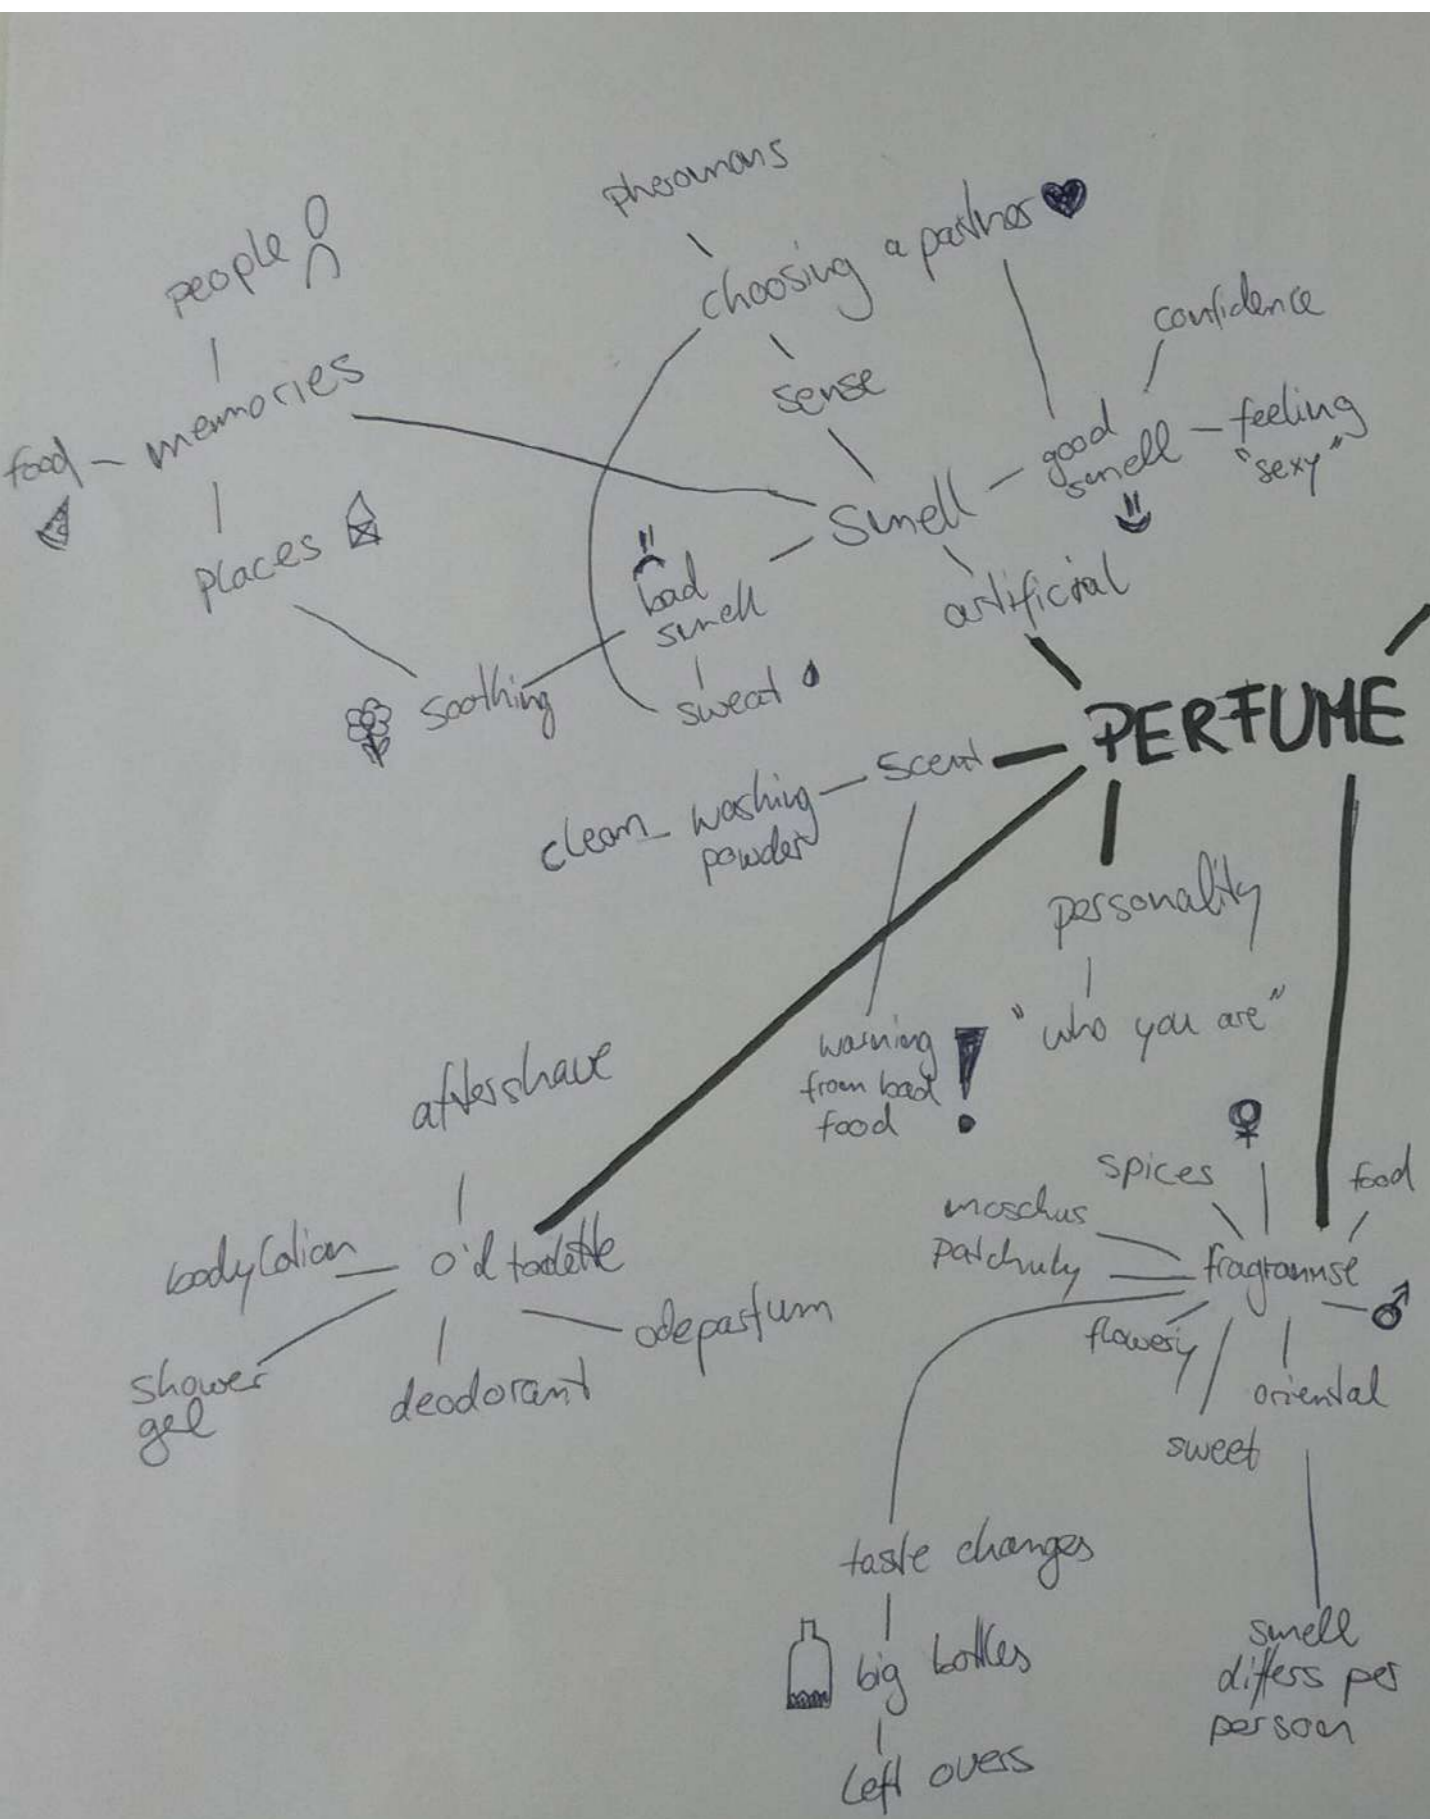 pheromons
people
choosing a partner
confidence
memories
sense
food
good
smell
feeling
"sexy"
Smell
places
bad
smell
artificial
soothing
sweat
PERFUME
scent
clean
washing
powder
personality
"who you are"
warning
from bad
food
!
aftershave
spices
food
moschus
patchuly
fragrannse
bodylotion
o'd toilette
odeparfum
flowery
oriental
shower
gel
deodorant
sweet
taste changes
big bottles
left overs
smell
differs per
person